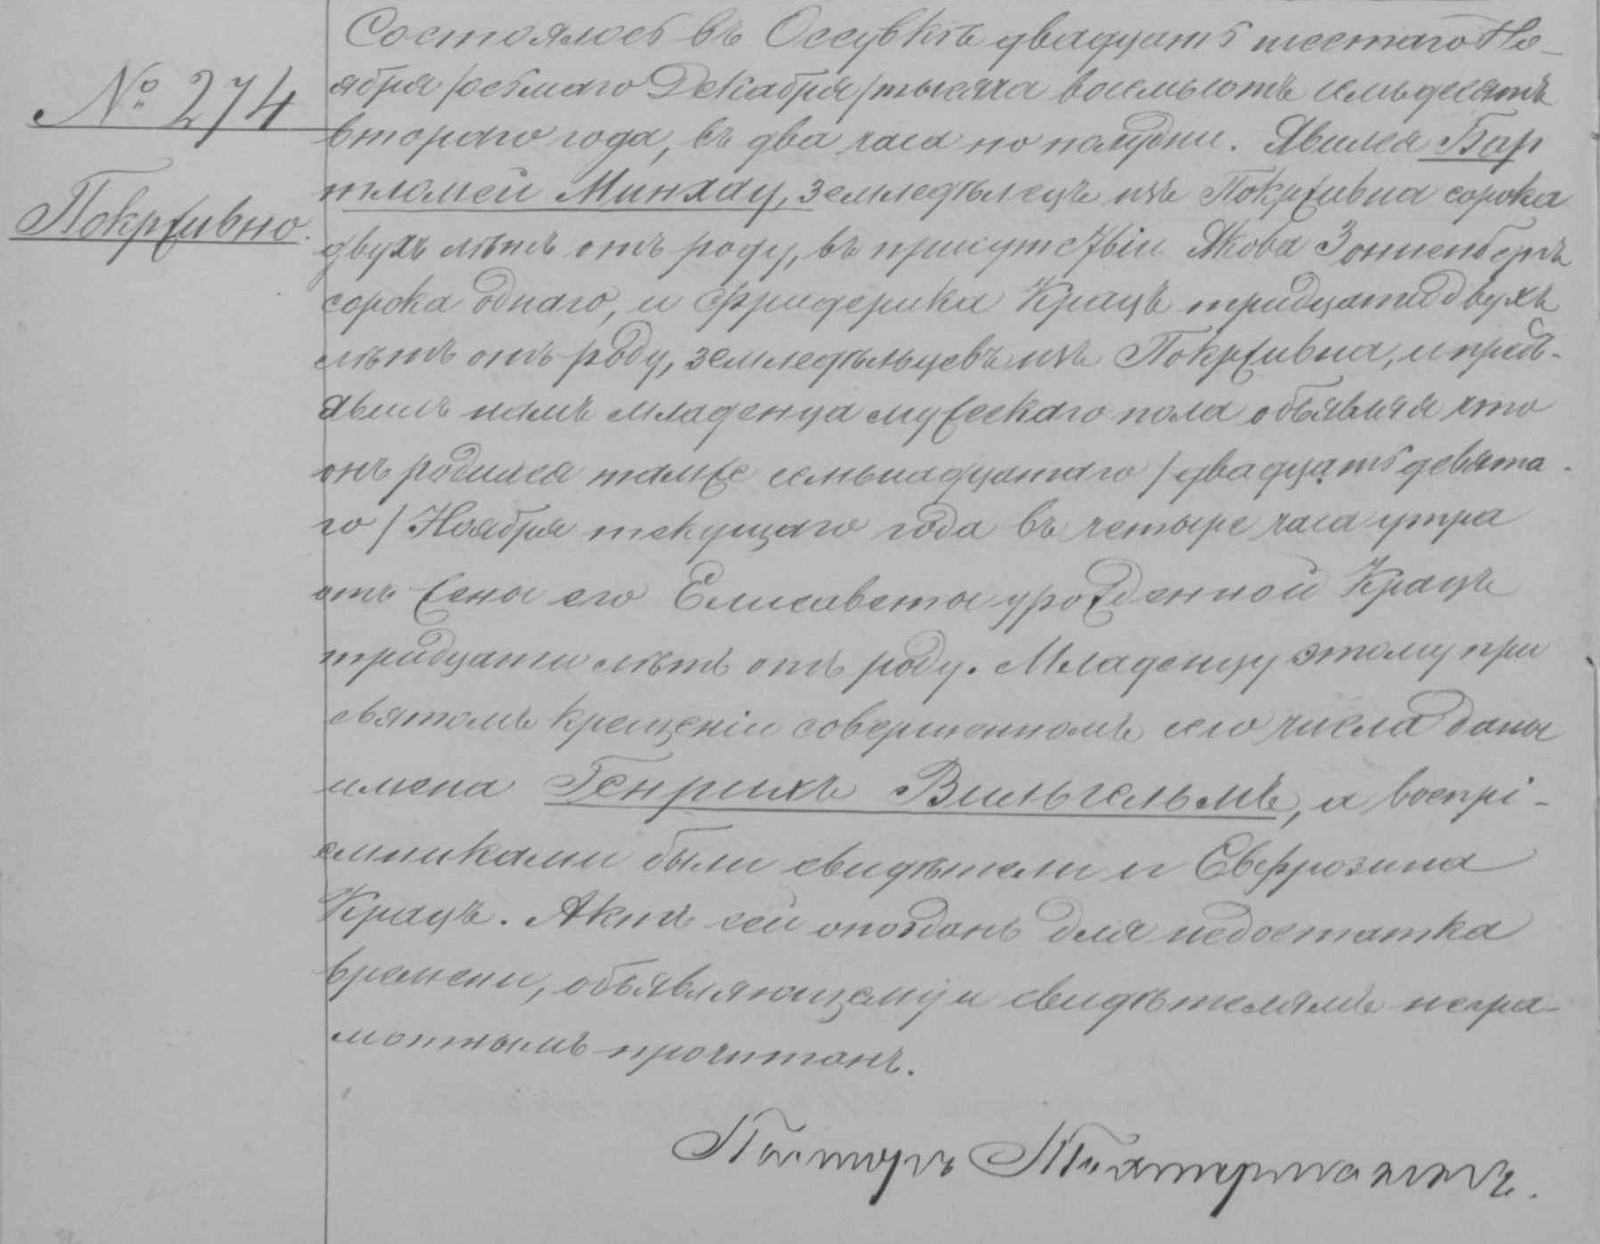 № 274
Покрживно.
Состоялось въ Оссувкѣ двадцать шестаго Но-
ября /осьмаго Декабря/ тысяча восемьсотъ семьдесятъ
втораго года, въ два часа по полудни. Явился Бар
тломей Минхау, земледѣлецъ изъ Покрживна сорока
двухъ лѣтъ отъ роду, въ присутствіи Якова Зонненбергъ
сорока однаго, и Фридерика Крацъ тридцати двухъ
лѣтъ отъ роду, земледѣльцевъ изъ Покрживна, и предъ-
явилъ намъ младенца мужескаго пола объявляя что
онъ родился тамже семьнадцатаго /двадцать девята-
го/ Ноября текущаго года въ четыре часа утра
отъ жены его Елисаветы урожденной Крацъ
тридцати лѣтъ отъ роду. Младенцу этому при
святомъ крещеніи совершенномъ сего числа даны
имена Генрихъ Вильгельмъ, а воспрі-
емниками были свидѣтели и Евфрозина
Крацъ. Актъ сей опозданъ для недостатка
времени, объявляющему и свидѣтелямъ негра-
мотнымъ прочитанъ.
Пасторъ